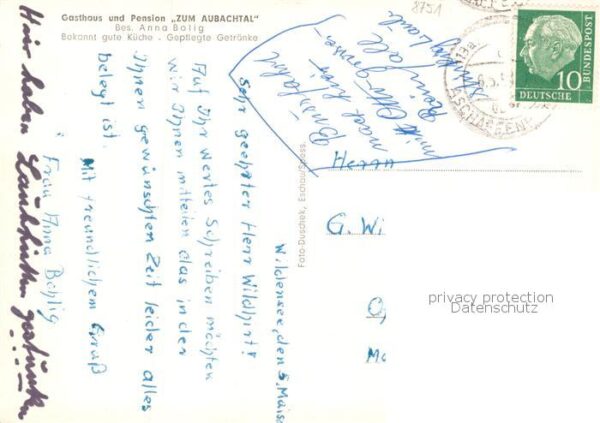 Gasthaus und Pension „ZUM AUBACHTAL"
Bes. Anna Bolig
Bekannt gute Küche - Gepflegte Getränke
8751
DEUTSCHE
BUNDESPOST
10
ASCHAFFEN
Wildensee, den 5. Mai 58
Sehr geehrter Herr Wildhirt!
Auf Ihr wertes Schreiben möchten
wir Ihnen mitteilen das in der
Ihnen gewünschten Zeit leider alles
belegt ist.
Mit freundlichem Gruß
Frau Anna Bohlig
Hier haben
Busfahrt
nach hier
mit
Reinfall
Foto-Duschek, Eschau/Spess.
Herrn
G. Wi
O
Mo
privacy protection
Datenschutz